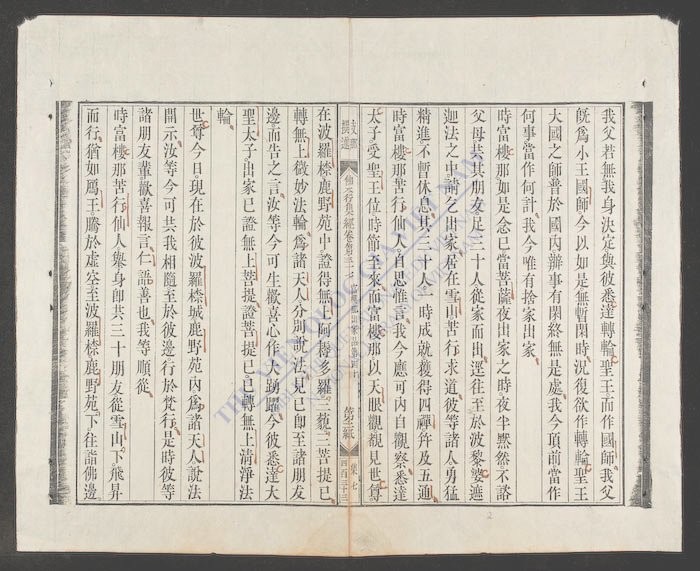 我父若無我身決定與彼悉達轉輪聖王而作國師我父
旣爲小王國師今以如是無暫閑時況復欲作轉輪聖王
大國之師普於國內辦事有閑終無是處我今項前當作
何事當作何計我今唯有捨家出家
時富樓那如是念已當菩薩夜出家之時夜半黙然不諮
父母共其朋友足三十人從家而出逕往至於波黎婆遮
迦法之中請乞出家居在雪山苦行求道彼等諸人勇猛
精進不暫休息其三十人一時成就獲得四禪幷及五通
時富樓那苦行仙人自思惟言我今應可內自觀察悉達
太子受聖王位時節至來而富樓那以天眼觀覩見世尊
在波羅㮈鹿野苑中證得無上阿耨多羅三藐三菩提已
轉無上微妙法輪爲諸天人分別說法見已卽至諸朋友
邊而告之言汝等今可生歡喜心作大踴躍今彼悉達大
聖太子出家已證無上菩提證菩提已已轉無上清淨法
輪
世尊今日現在於彼波羅㮈城鹿野苑內爲諸天人說法
開示汝等今可共我相隨至於彼邊行於梵行是時彼等
諸朋友輩歡喜報言仁語善也我等順從
時富樓那苦行仙人㷂身卽共三十朋友從雪山下飛昇
而行猶如鴈王騰於虛空至波羅㮈鹿野苑下往詣佛邊